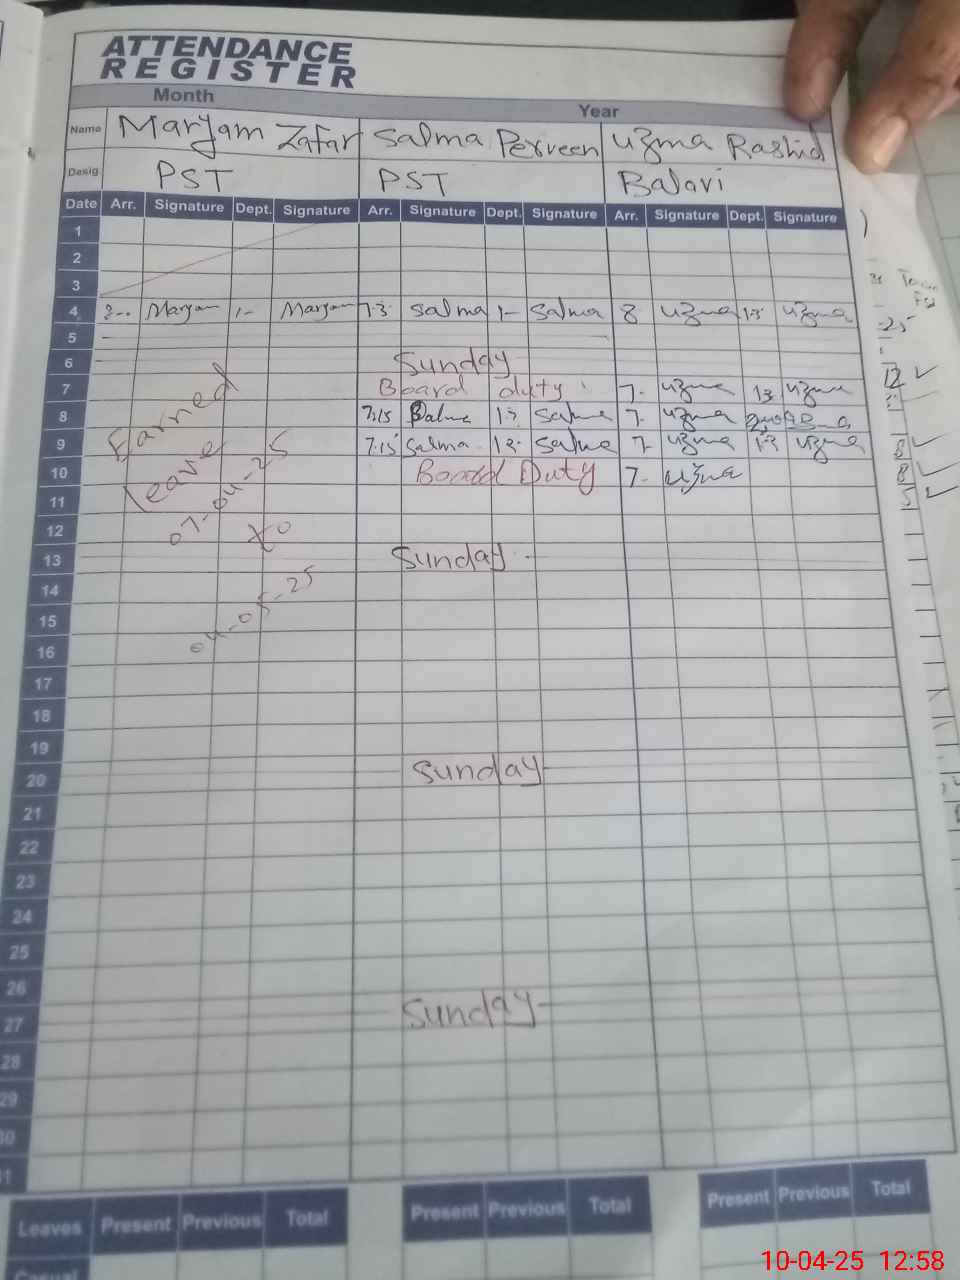 ATTENDANCE
REGISTER
Month Year
Name Maryam Zafar Salma Perveen Uzma Rashid
Desig PST PST Balavi
Date Arr. Signature Dept. Signature Arr. Signature Dept. Signature Arr. Signature Dept. Signature
1
2
3
4 Maryam 1- Maryam salma 1- Salma 8 uzma uzma
5
6 Sunday
7 Board duty 7- uzma 13 uzma
8 7:15 Salma salma 7- uzma
9 7:15 Salma Salma 7- uzma 13 uzma
10 Board Duty 7- uzma
Earned
leave
07-04-25
to
04-05-25
11
12
13 Sunday
14
15
16
17
18
19
20 Sunday
21
22
23
24
25
26
27 Sunday
28
29
30
31
Leaves Present Previous Total Present Previous Total Present Previous Total
Casual
10-04-25 12:58